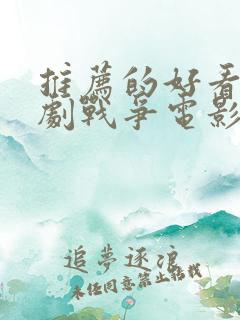 推薦的好看
劇戰爭電影
追夢逐浪
未任同意禁止轉載